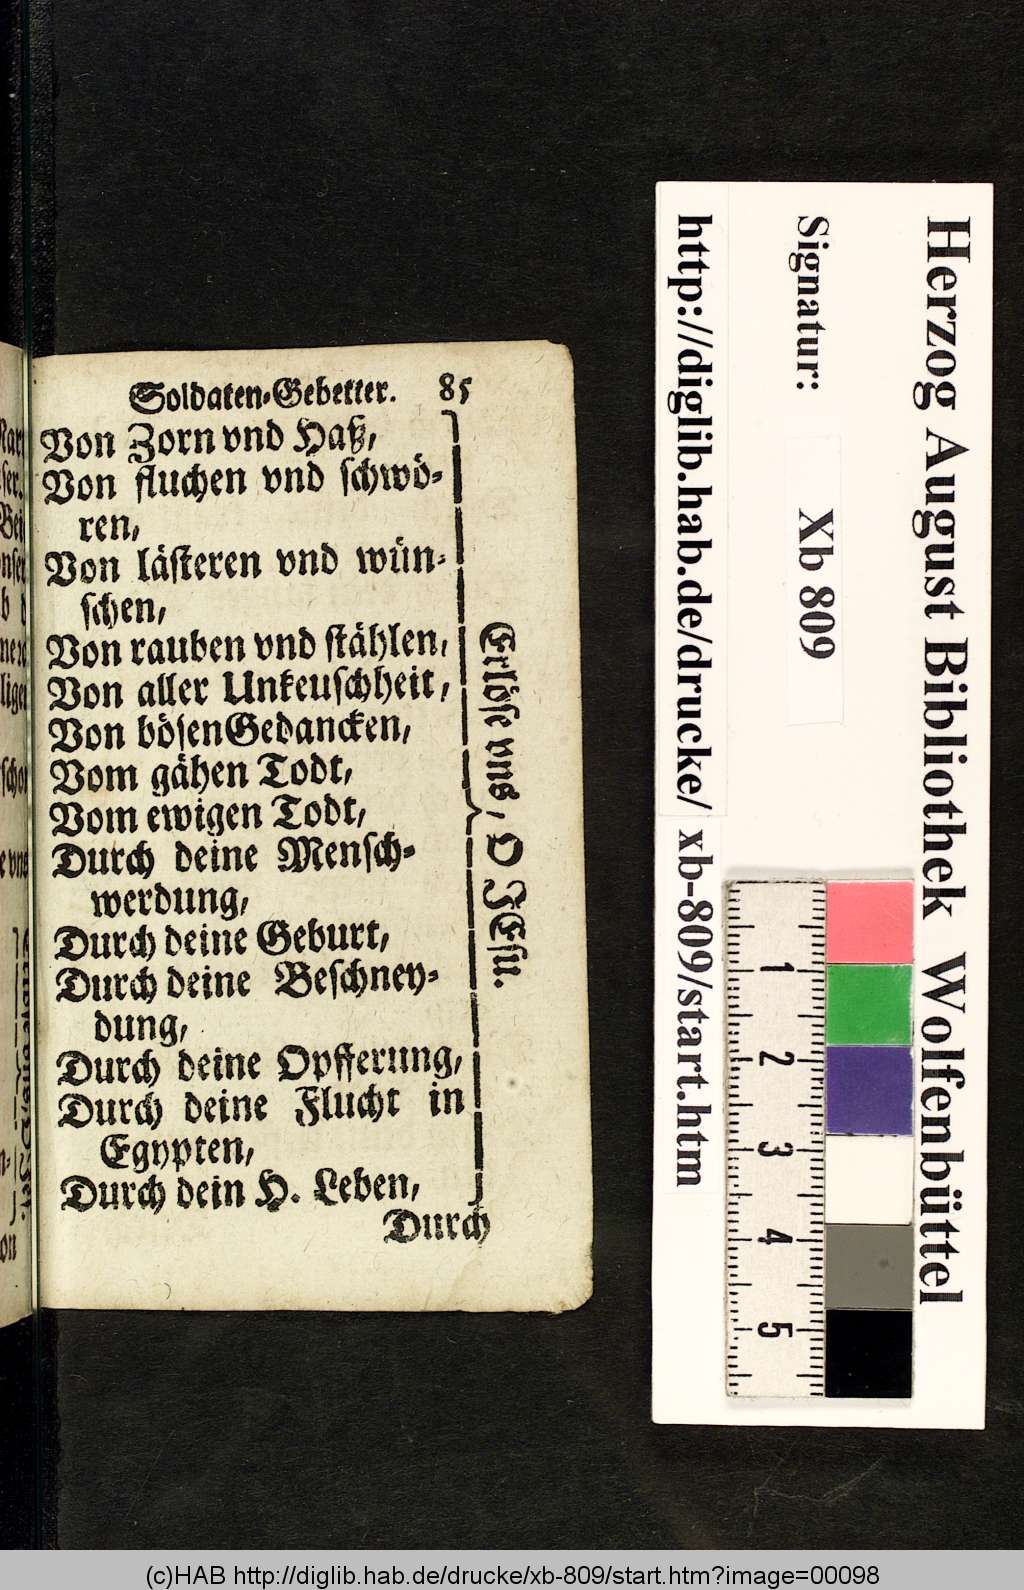 Soldaten-Gebetter. 85
Von Zorn vnd Haß,
Von fluchen vnd schwö-
ren,
Von lästeren vnd wün-
schen,
Von rauben vnd stählen,
Von aller Unkeuschheit,
Von bösen Gedancken,
Vom gähen Todt,
Vom ewigen Todt,
Durch deine Mensch-
werdung,
Durch deine Geburt,
Durch deine Beschney-
dung,
Durch deine Opfferung,
Durch deine Flucht in
Egypten,
Durch dein H. Leben,
Erlöse vns, O JEsu.
Durch
Herzog August Bibliothek Wolfenbüttel
Signatur: Xb 809
http://diglib.hab.de/drucke/ xb-809/start.htm
1
2
3
4
5
(c)HAB http://diglib.hab.de/drucke/xb-809/start.htm?image=00098